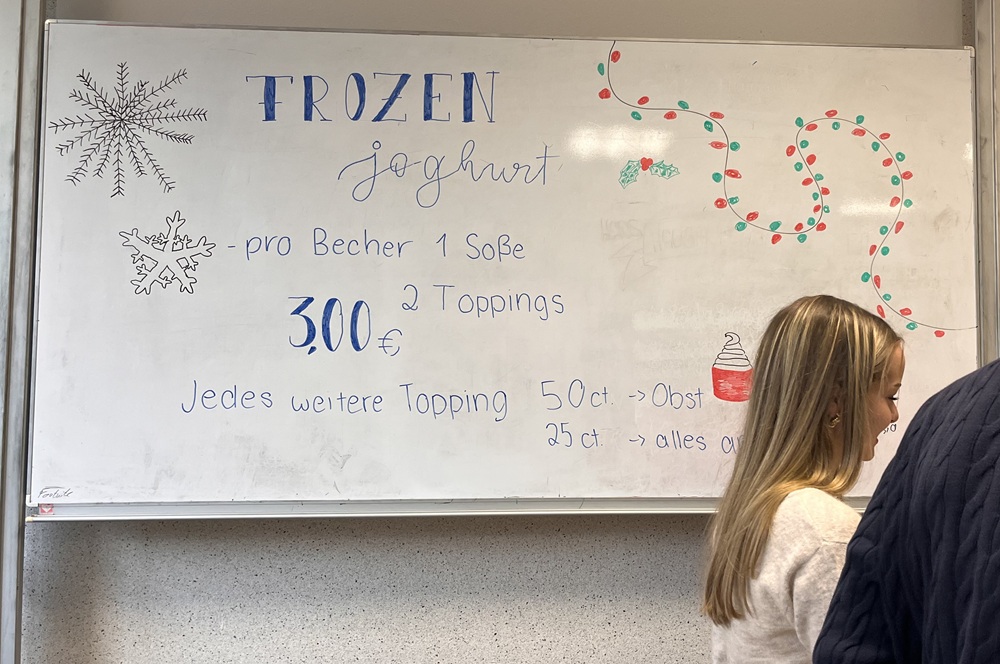 FROZEN
joghurt
- pro Becher 1 Soße
2 Toppings
3,00 €
Jedes weitere Topping 50 ct. → Obst
25 ct. → alles